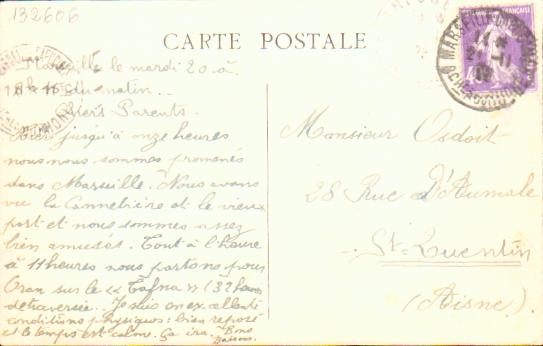 132606
CARTE POSTALE
Marseille le mardi 20 à
8h du matin..
Chers Parents.
Hier jusqu'à onze heures
nous nous sommes promenés
dans Marseille. Nous avons
vu la Cannebière et le vieux
port et nous sommes assez
bien amusés. Tout à l'heure
à 11 heures nous partons pour
Oran sur le "Tafna" (32 heures
de traversée. Je suis en excellentes
conditions physiques: bien reposé
et le temps est calme. Ça ira. Bons
Baisers.
Monsieur Osdoit
28 Rue D'Aumale
St-Quentin
(Aisne)
MARSEILLE